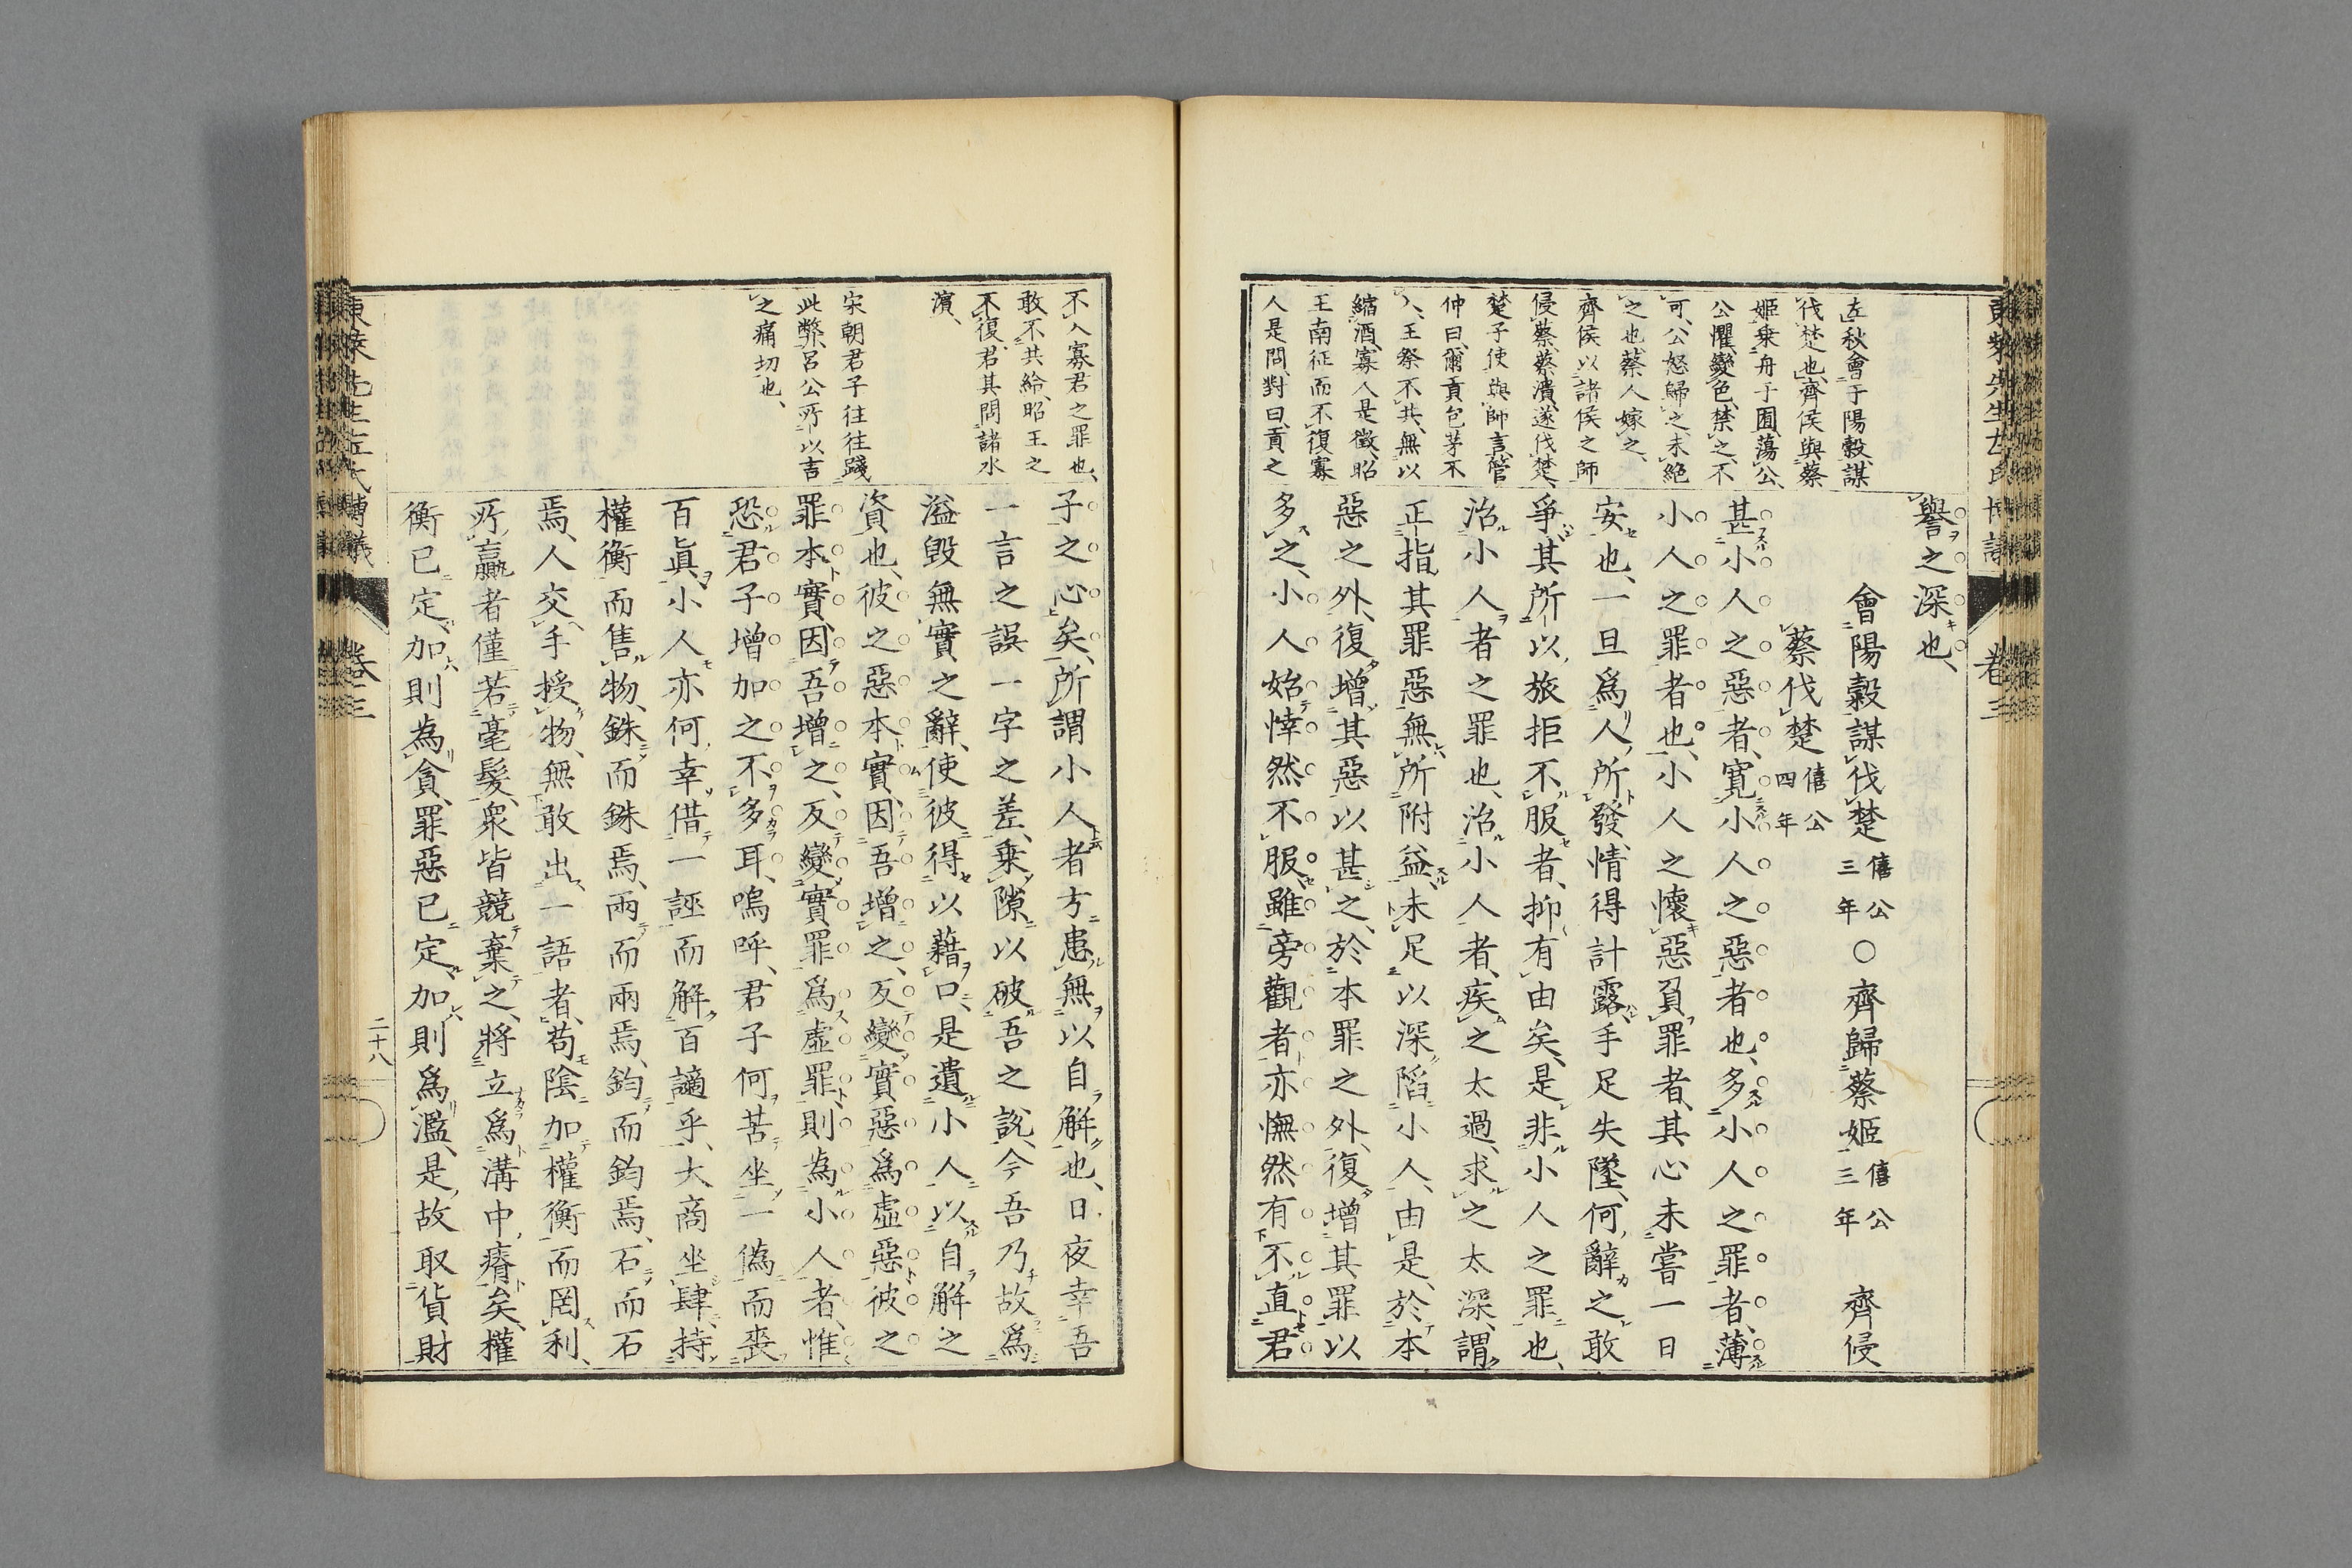 東萊先生左氏博議
卷三
譽之深也、
會陽穀謀伐楚僖公三年○齊歸蔡姬僖公三年 齊侵
蔡伐楚僖公四年
甚小人之惡者、寬小人之惡者也、多小人之罪者、薄
小人之罪者也、小人之懷惡負罪者、其心未嘗一日
安也、一旦爲人所發、情得計露、手足失墜、何辭之敢
爭、其所以旅拒不服者、抑有由矣、是非小人之罪也、
治小人者之罪也、治小人者、疾之太過、求之太深、謂
正指其罪惡、無所附益、未足以深陷小人、由是、於本
惡之外、復增其惡以甚之、於本罪之外、復增其罪以
多之、小人始悻然不服、雖旁觀者亦憮然有不直君
左秋會于陽穀、謀
伐楚也、齊侯與蔡
姬乘舟于囿、蕩公、
公懼、變色、禁之、不
可、公怒歸之、未絕
之也、蔡人嫁之、
齊侯以諸侯之師
侵蔡、蔡潰、遂伐楚、
楚子使與師言、管
仲曰、爾貢包茅不
入、王祭不共、無以
縮酒、寡人是徵、昭
王南征而不復、寡
人是問、對曰、貢之
不入寡君之罪也、
敢不共給、昭王之
不復、君其問諸水
濱、
宋朝君子往往踐
此弊、呂公所以言
之痛切也、
子之心矣、所謂小人者方患無以自解也、日夜幸吾
一言之誤一字之差、乗隙以破吾之說、今吾乃故爲
溢毀無實之辭、使彼得以藉口、是遺小人以自解之
資也、彼之惡本實、因吾增之、反變實惡爲虛惡、彼之
罪本實、因吾增之、反變實罪爲虛罪、則為小人者、惟
恐君子增加之不多耳、嗚呼、君子何苦坐一僞而喪
百眞、小人亦何幸借一誣而解百讁乎、大商坐肆、持
權衡而售物、銖而銖焉、兩而兩焉、鈞而鈞焉、石而石
焉、人交手授物、無敢出一語者、苟陰加權衡而罔利、
所贏者僅若毫髮、衆皆競棄之、將立爲溝中瘠矣、權
衡已定、加則為貪、罪惡已定、加則爲濫、是故取貨財
東萊先生左氏博議
卷三
二十八